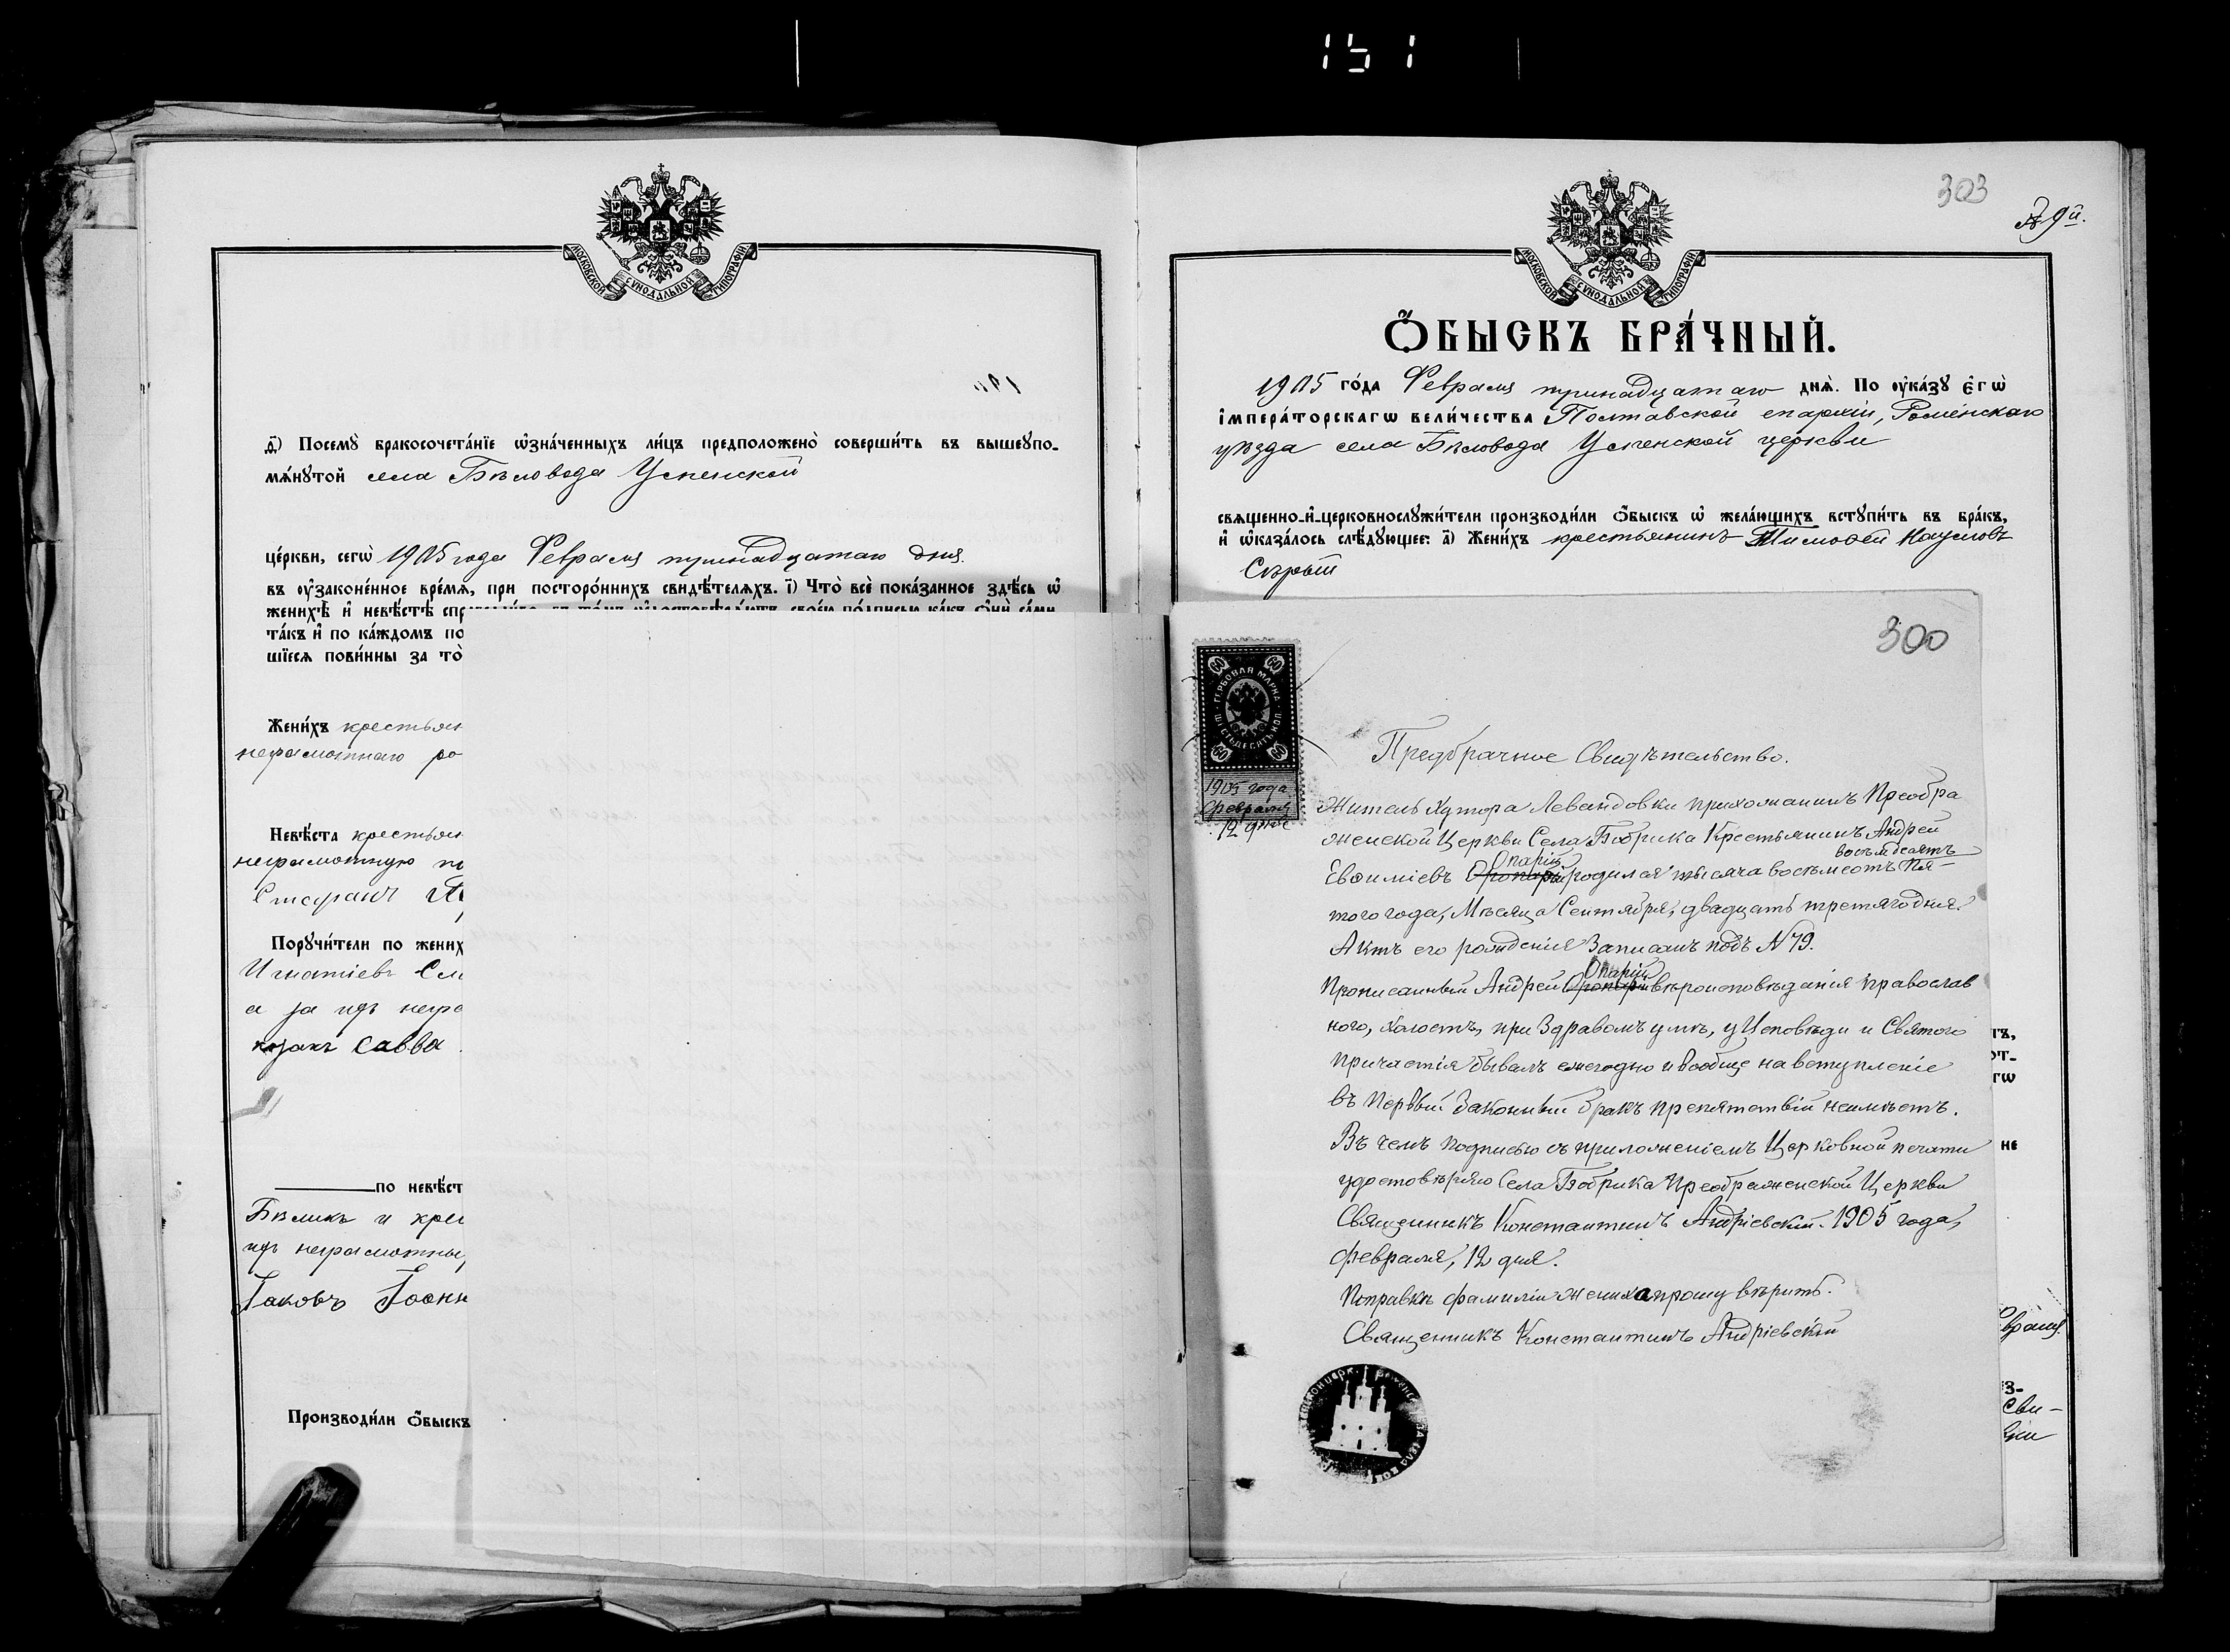 151
МОСКОВСКОЙ СУНОДАЛЬНОЙ ТИПОГРАФІИ
д҃) Посемꙋ̀ бракосочета́нїе ѡ҆зна́ченныхъ ли́цъ предположено̀ соверши́ть въ вышеꙋпо-
мѧ́нꙋтой села Бѣловода Успенской
це́ркви, сегѡ̀ 1905 года Февраля тринадцатаго дня.
въ ᲂу҆законе́нное вре́мѧ, при посторо́ннихъ свидѣ́телѧхъ. і҃) Что̀ всѐ пока́занное здѣ́сь ѡ҆
женихѣ̀ и҆ невѣ́стѣ спр
та́къ и҆ по ка́ждомъ по
шїесѧ пови́нны за то̀
Жени́хъ крестьян
неграмотнаго ро
Невѣ́ста крестьян
неграмотную по
Стефанъ
Порꙋчи́тели по жених
Игнатіевъ Сл
а за ихъ негра
козакъ Савва
по невѣ́ст
Бѣликъ и крес
ихъ неграмотны,
Іаковъ Іоанн
Производи́ли ѻ҆́быскъ
303
№ 9й.
МОСКОВСКОЙ СУНОДАЛЬНОЙ ТИПОГРАФІИ
Ѻ҆́БЫСКЪ БРА́ЧНЫЙ.
1905 го́да Февраля тринадцатаго днѧ̀. По ᲂу҆ка́зꙋ є҆гѡ̀
і҆мпера́торскагѡ вели́чества Полтавской епархіи, Роменскаго
уѣзда села Бѣловода Успенской церкви
свѧщенно-и҆-церковнослꙋжи́тели производи́ли ѻ҆́быскъ ѡ҆ жела́ющихъ встꙋпи́ть въ бра́къ,
и҆ ѡ҆каза́лось слѣ́дꙋющее: а҃) Жени́хъ крестьянинъ Тимоѳей Наумовъ
Сѣрый
300
ГЕРБОВАЯ МАРКА
60 60
ШЕСТЬДЕСЯТЪ КОП
60 60
1905 года
февраля
12 дня
Предбрачное Свидѣтельство.
Житель Хутора Левандовки прихожанинъ Преобра
женской Церкви Села Бобрика Крестьянинъ Андрей
Опарій восемдесятъ
Евѳиміевъ родился тысяча восемьсотъ Пя-
того года, Мѣсяца Сентября, двадцать третяго дня.
Актъ его рожденія Записанъ подъ N 79.
Опарій
Прописанный Андрей вѣроисповѣданія православ
ного, Холостъ, при Здравомъ умѣ, у Исповѣди и Святого
причастія бывалъ ежегодно и вообще на вступленіе
въ Первый Законный бракъ препятствій неимѣетъ.
Въ чемъ подписью съ приложеніемъ Церковной печати
удостовѣряю Села Бобрика Преображенской Церкви
Священникъ Константинъ Андріевскій. 1905 года,
февраля, 12 дня.
Поправкѣ фамиліи жениха прошу вѣрить.
Священникъ Константинъ Андріевскій
тъ,
от-
гѡ
не
враля
з-
Сви-